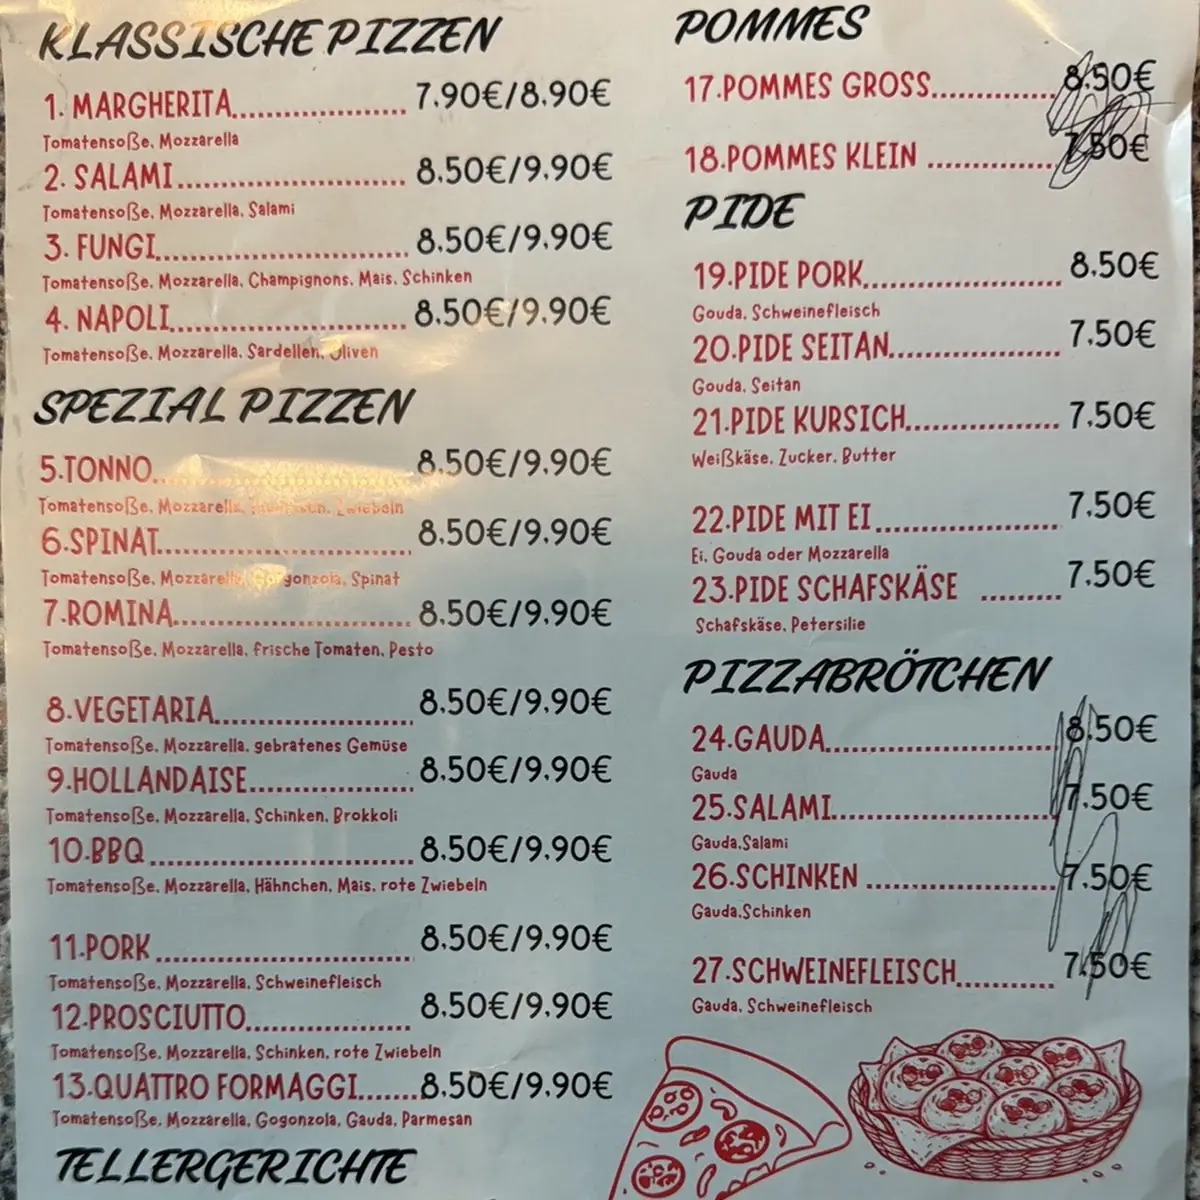 KLASSISCHE PIZZEN
1. MARGHERITA.................. 7.90€/8.90€
Tomatensoße, Mozzarella
2. SALAMI........................ 8.50€/9.90€
Tomatensoße, Mozzarella, Salami
3. FUNGI.......................... 8.50€/9.90€
Tomatensoße, Mozzarella, Champignons, Mais, Schinken
4. NAPOLI........................ 8.50€/9.90€
Tomatensoße, Mozzarella, Sardellen, Oliven
SPEZIAL PIZZEN
5.TONNO.......................... 8.50€/9.90€
Tomatensoße, Mozzarella, Zwiebeln
6.SPINAT.......................... 8.50€/9.90€
Tomatensoße, Mozzarella, Gorgonzola, Spinat
7.ROMINA........................ 8.50€/9.90€
Tomatensoße, Mozzarella, frische Tomaten, Pesto
8.VEGETARIA.................... 8.50€/9.90€
Tomatensoße, Mozzarella, gebratenes Gemüse
9.HOLLANDAISE................ 8.50€/9.90€
Tomatensoße, Mozzarella, Schinken, Brokkoli
10.BBQ .......................... 8.50€/9.90€
Tomatensoße, Mozzarella, Hähnchen, Mais, rote Zwiebeln
11.PORK .......................... 8.50€/9.90€
Tomatensoße, Mozzarella, Schweinefleisch
12.PROSCIUTTO................ 8.50€/9.90€
Tomatensoße, Mozzarella, Schinken, rote Zwiebeln
13.QUATTRO FORMAGGI.......8.50€/9.90€
Tomatensoße, Mozzarella, Gogonzola, Gauda, Parmesan
TELLERGERICHTE
POMMES
17.POMMES GROSS............. 8.50€
18.POMMES KLEIN ............. 7.50€
PIDE
19.PIDE PORK..................... 8.50€
Gouda, Schweinefleisch
20.PIDE SEITAN.................. 7.50€
Gouda, Seitan
21.PIDE KURSICH................ 7.50€
Weißkäse, Zucker, Butter
22.PIDE MIT EI................... 7.50€
Ei, Gouda oder Mozzarella
23.PIDE SCHAFSKÄSE ......... 7.50€
Schafskäse, Petersilie
PIZZABRÖTCHEN
24.GAUDA......................... 8.50€
Gauda
25.SALAMI........................ 7.50€
Gauda,Salami
26.SCHINKEN .................... 7.50€
Gauda,Schinken
27.SCHWEINEFLEISCH........... 7.50€
Gauda, Schweinefleisch